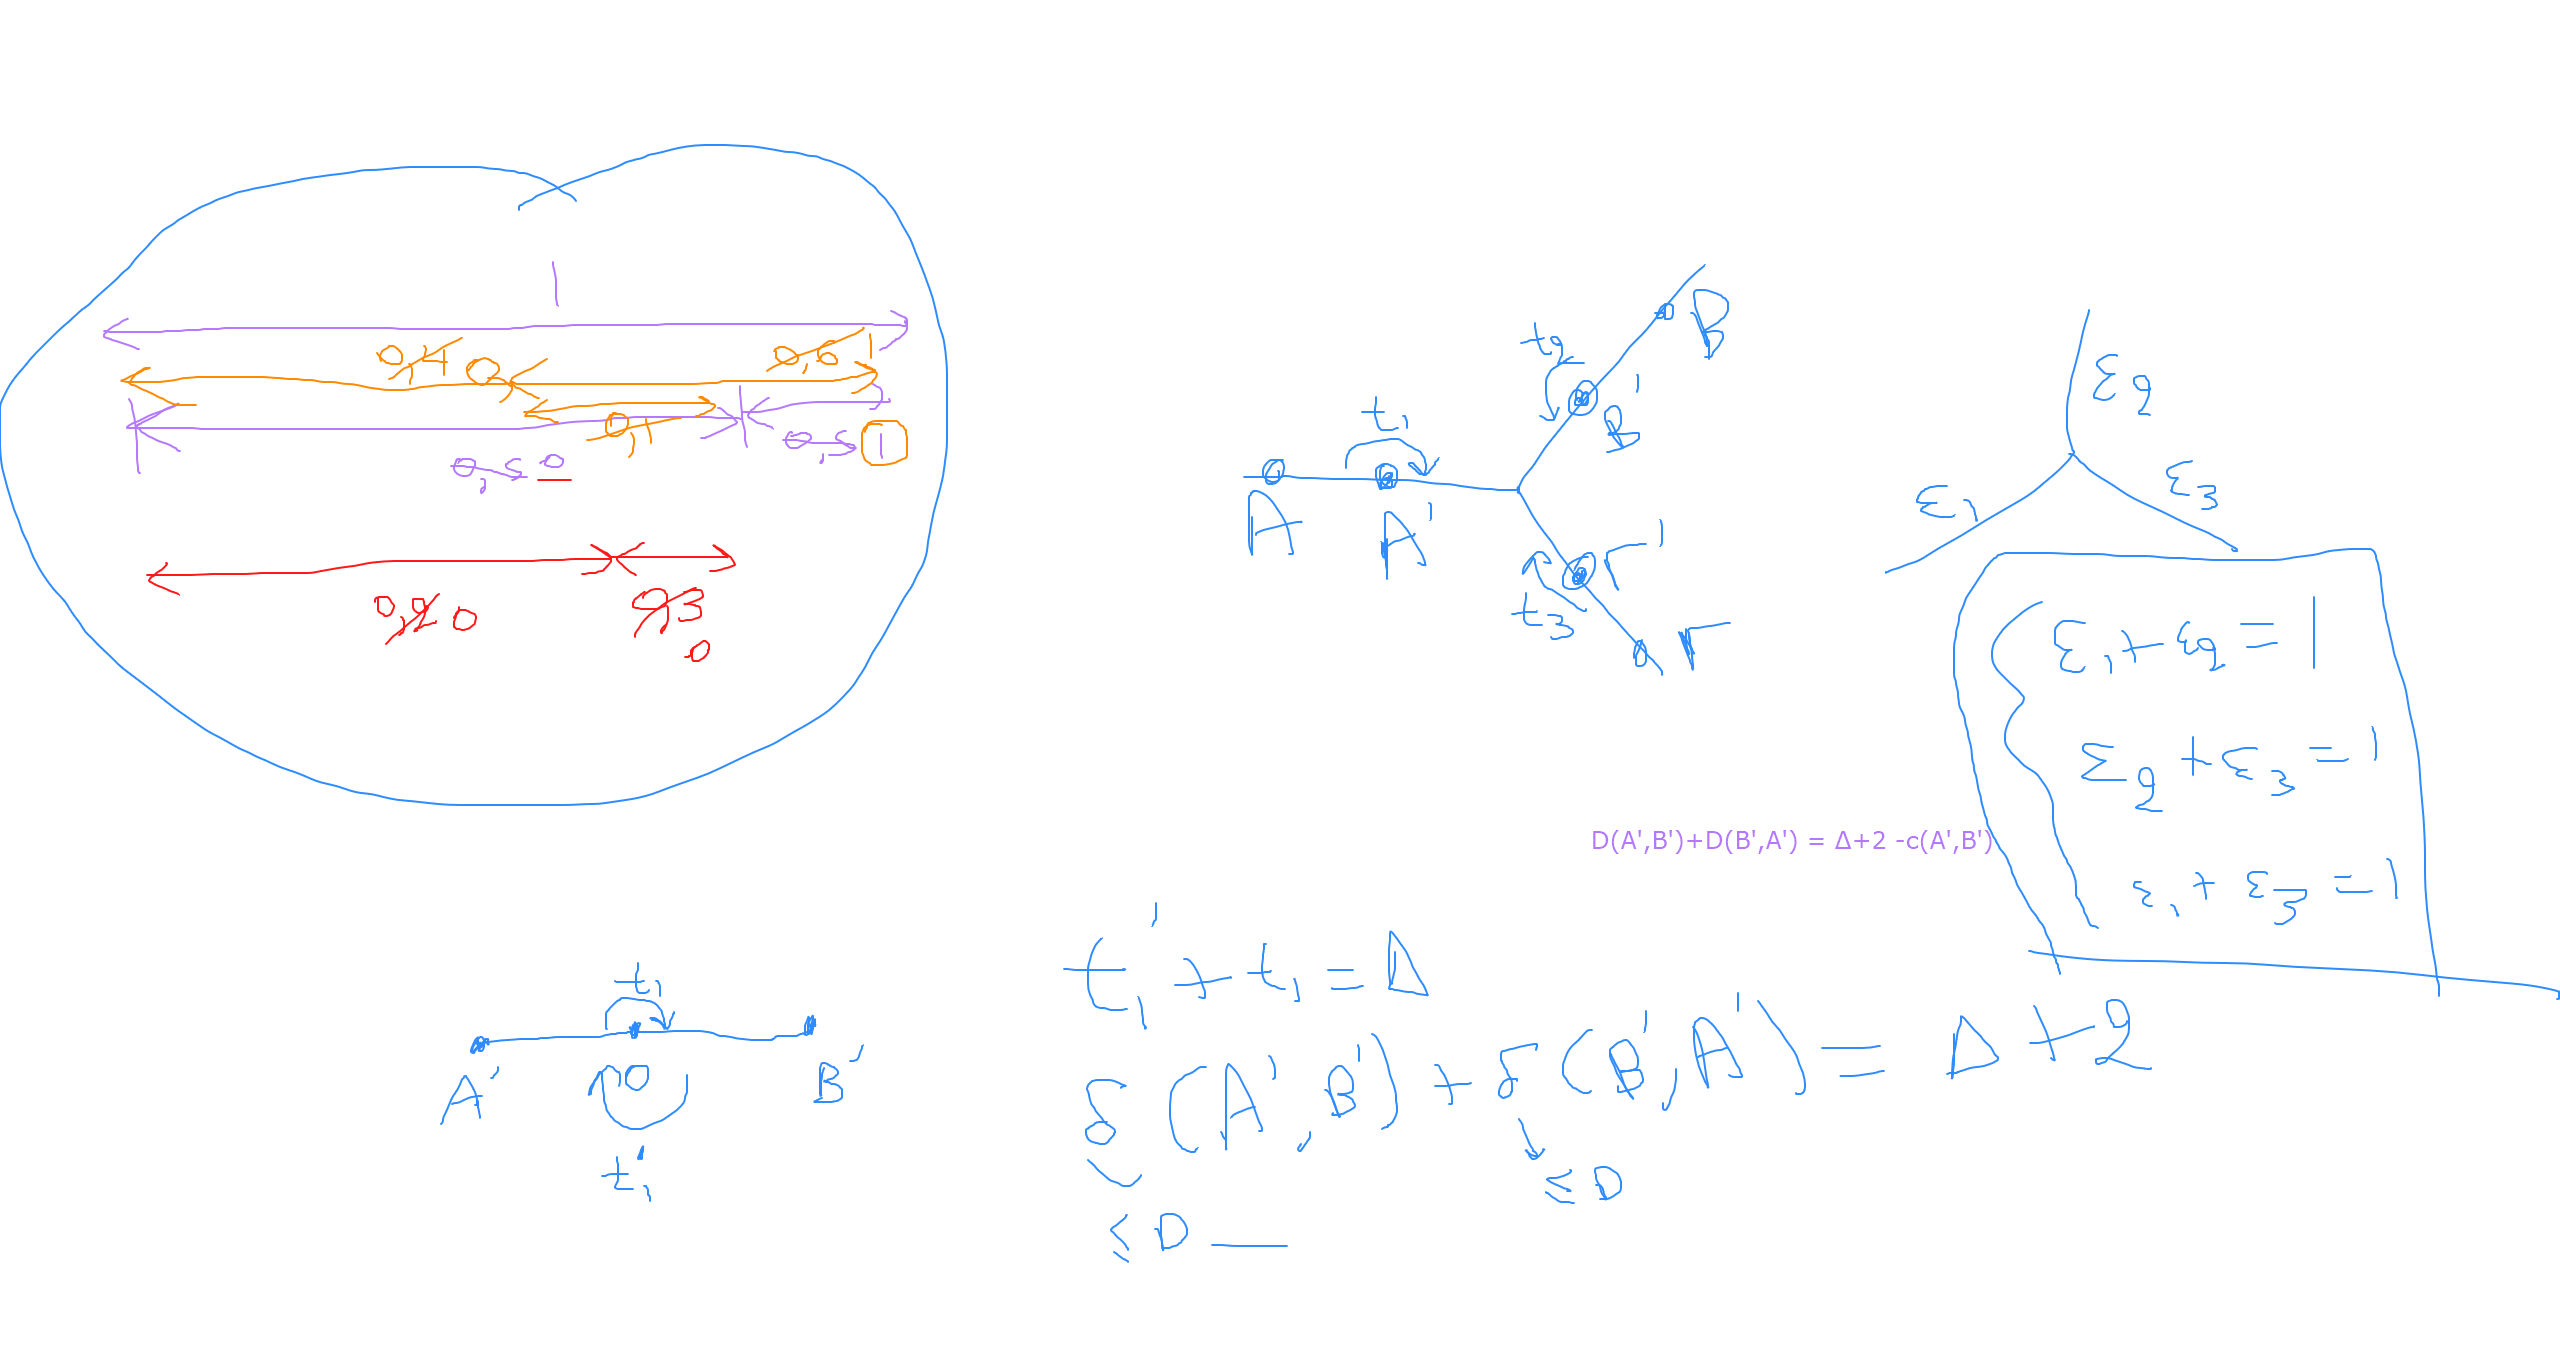 1
0,4 0 0,6 1
0,1
0,5 0 0,5 1
0,2 0 0,3
0
A
t₁
A'
t₂
B
B'
t₃
Γ'
Γ
ε₁
ε₂
ε₃
ε₁+ε₂=1
ε₂+ε₃=1
ε₁+ε₃=1
D(A',B')+D(B',A') = Δ+2 -c(A',B')
t₁
A'
B'
t₁'
t₁'+t₁=Δ
δ(A',B')+δ(B',A')=Δ+2
≤D
≤D